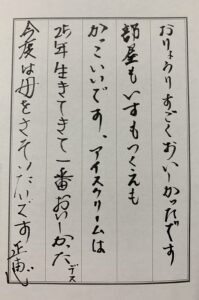 おりょうりすごくおいしかったです
部屋もいすもつくえも
かっこいいです、アイスクリームは
25年生きてきて一番おいしかったデス
今度は母をさそいたいです